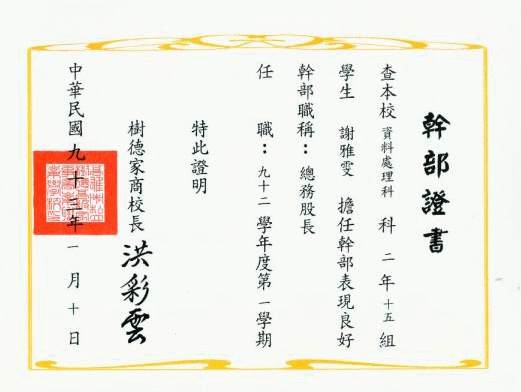 幹部證書
查本校 資料處理科 科 二 年 十五 組
學生 謝雅雯 擔任幹部表現良好
幹部職稱：總務股長
任 職：九十二學年度第一學期
特此證明
樹德家商校長 洪彩雲
中華民國九十三年一月十日